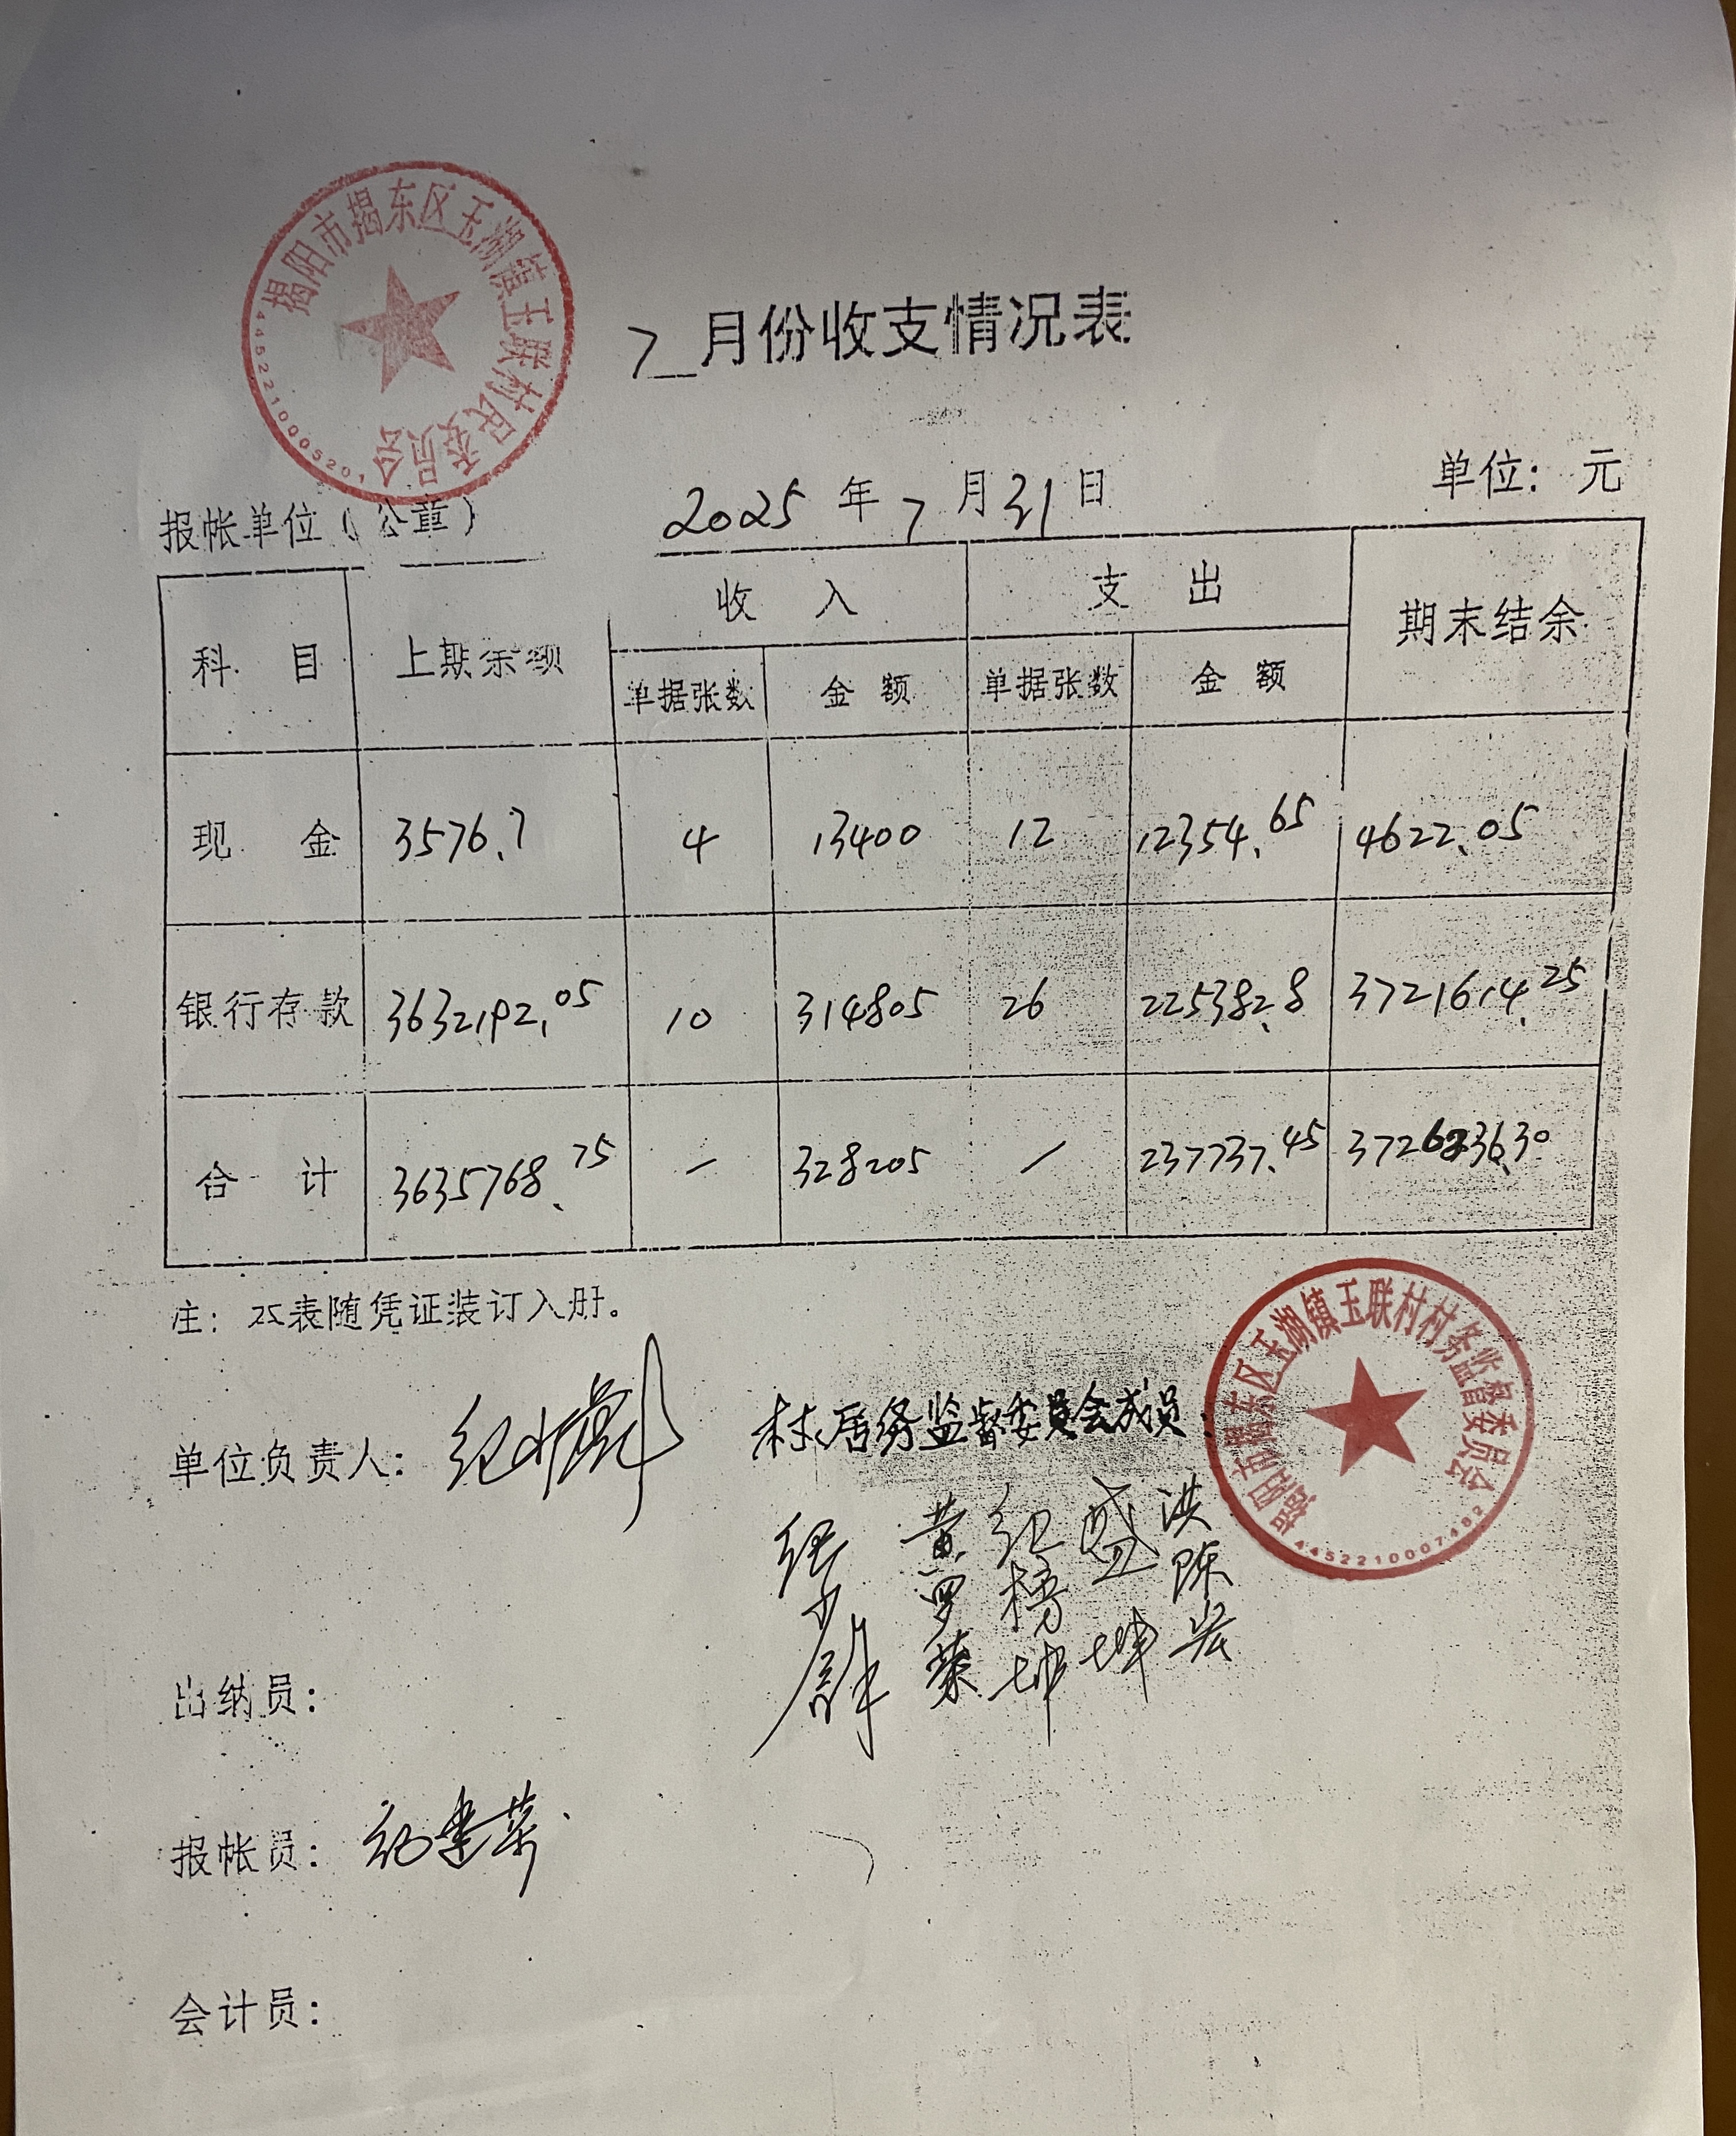 揭阳市揭东区玉湖镇玉联村民委员会
4452210005201
7 月份收支情况表
报帐单位(公章) 2025年7月31日 单位：元
科目 上期余额 收入 支出 期末结余
单据张数 金额 单据张数 金额
现金 3576.7 4 13400 12 12354.65 4622.05
银行存款 3632192.05 10 314805 26 225382.8 3721614.25
合计 3635768.75 — 328205 / 237737.45 3726236.30
注：本表随凭证装订入册。
揭阳市揭东区玉湖镇玉联村村务监督委员会
4452210007482
单位负责人： 村居务监督委员会成员：
黄 纪榜坤 盛坤 洪陈宏
出纳员：
报帐员：
会计员：